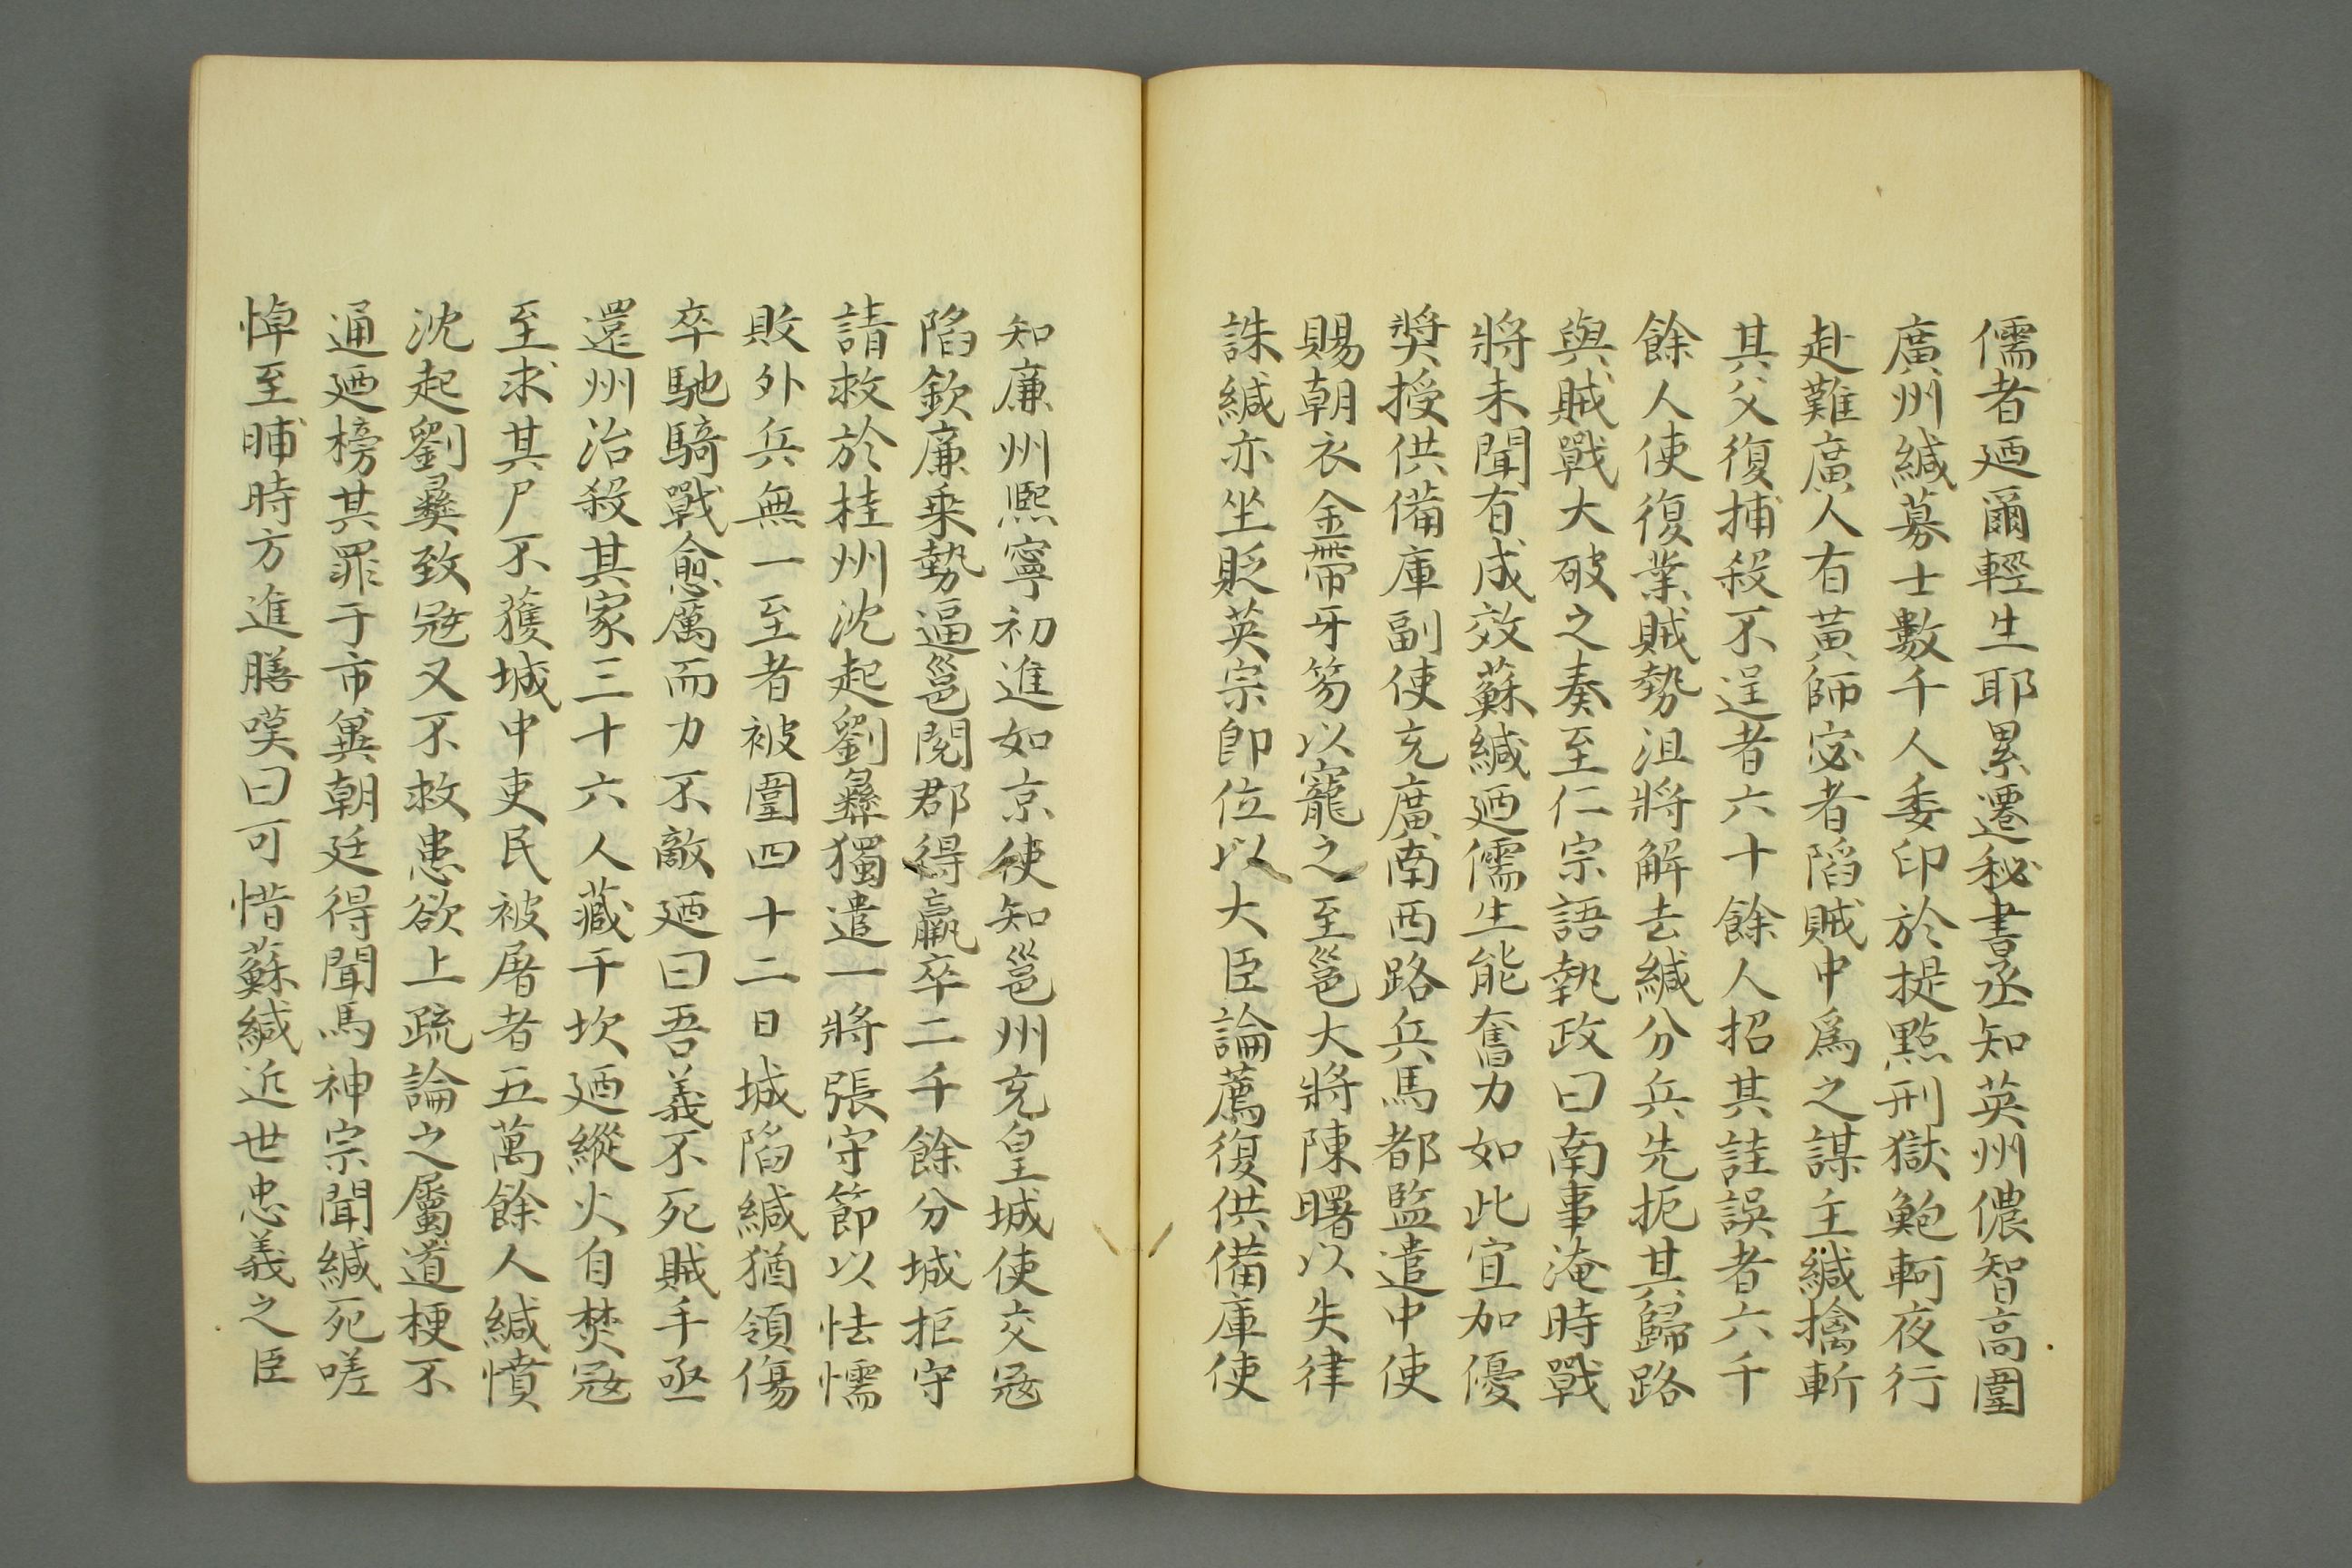 儒者廼爾輕生耶累遷秘書丞知英州儂智高圍
廣州緘募士數千人委印於提點刑獄鮑軻夜行
赴難廣人有黃師宓者陷賊中爲之謀主緘擒斬
其父復捕殺不逞者六十餘人招其詿誤者六千
餘人使復業賊勢沮將解去緘分兵先扼其歸路
與賊戰大破之奏至仁宗語執政曰南事淹時戰
將未聞有成效蘇緘廼儒生能奮力如此宜加優
奬授供備庫副使充廣南西路兵馬都監遣中使
賜朝衣金帶牙笏以寵之至邕大將陳曙以失律
誅緘亦坐貶英宗即位以大臣論薦復供備庫使
知廉州熈寧初進如京使知邕州充皇城使交冦
陷欽廉乗勢逼邕閱郡得羸卒二千餘分城拒守
請救於桂州沈起劉彝獨遣一將張守節以怯懦
敗外兵無一至者被圍四十二日城陷緘猶領傷
卒馳騎戰愈厲而力不敵廼曰吾義不死賊手亟
還州治殺其家三十六人藏于坎廼縱火自焚冦
至求其尸不獲城中吏民被屠者五萬餘人緘憤
沈起劉彝致冦又不救患欲上疏論之屬道梗不
通廼榜其罪于市冀朝廷得聞焉神宗聞緘死嗟
悼至晡時方進膳嘆曰可惜蘇緘近世忠義之臣